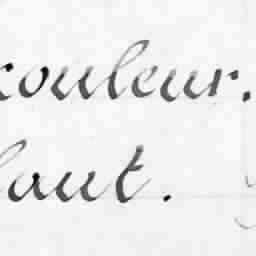 couleur.
faut.